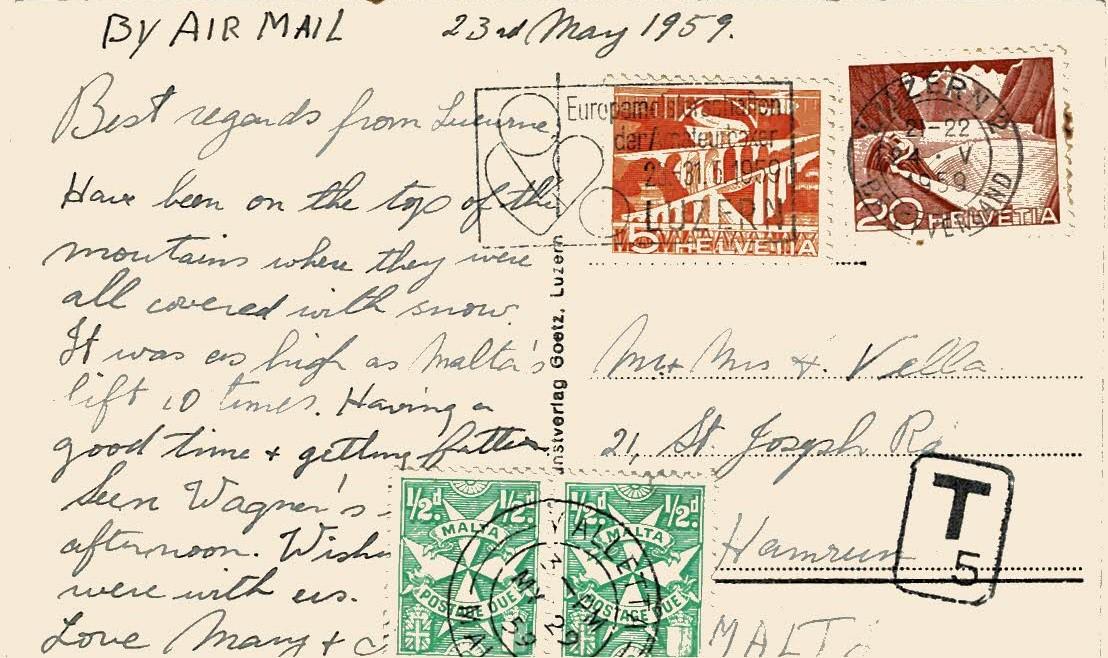 BY AIR MAIL 23rd May 1959.
Best regards from Lucerne
Have been on the top of the
mountains where they were
all covered with snow.
It was as high as Malta's
lift 10 times. Having a
good time + getting fatter
Seen Wagner's
afternoon. Wish
were with us.
Love Mary +
nstverlag Goetz, Luzern
der Amateurboxer
1959
LUZERN
5 HELVETIA
LUZERN 2
21-22
V
1959
20 HELVETIA
Mr + Mrs Vella
21, St. Joseph Rd
Hamrun
MALTA
T
5
1/2d 1/2d
MALTA
POSTAGE DUE
1/2d 1/2d
MALTA
POSTAGE DUE
VALLETTA
PM
MY 29
59